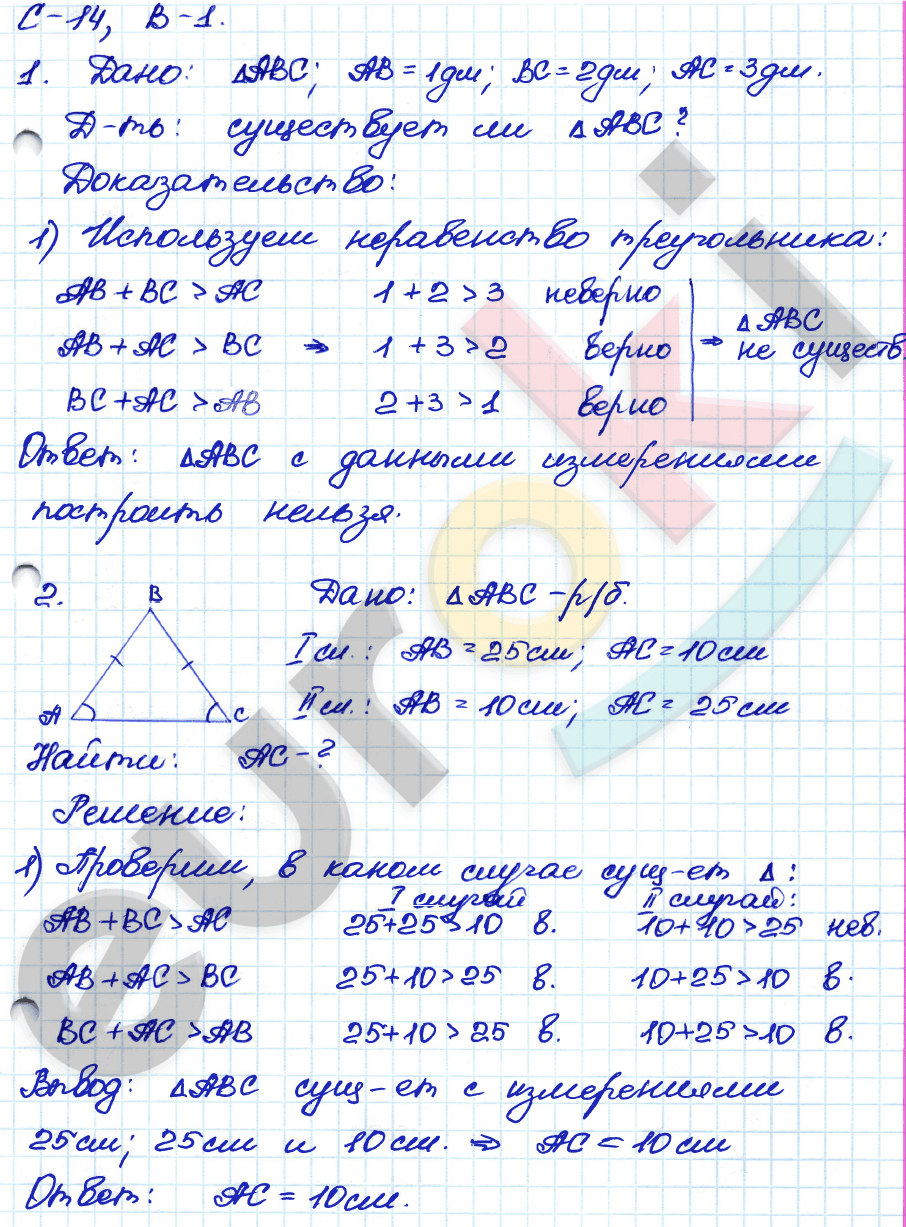 С-14, В-1.
1. Дано: △ABC; AB = 1дм; BC = 2дм; AC = 3дм.
Д-ть: существует ли △ABC?
Доказательство:
1) Используем неравенство треугольника:
AB + BC > AC 1 + 2 > 3 неверно
AB + AC > BC ⇒ 1 + 3 > 2 верно ⇒ △ABC не существ.
BC + AC > AB 2 + 3 > 1 верно
Ответ: △ABC с данными измерениями
построить нельзя.
2. B Дано: △ABC - р/б.
I сл.: AB = 25см; AC = 10см
A C II сл.: AB = 10см; AC = 25см
Найти: AC - ?
Решение:
1) Проверим, в каком случае сущ-ет △:
I случай II случай:
AB + BC > AC 25+25 > 10 в. 10+10 > 25 нев.
AB + AC > BC 25+10 > 25 в. 10+25 > 10 в.
BC + AC > AB 25+10 > 25 в. 10+25 > 10 в.
Вывод: △ABC сущ-ет с измерениями
25см; 25см и 10см. ⇒ AC = 10см
Ответ: AC = 10см.
euroki